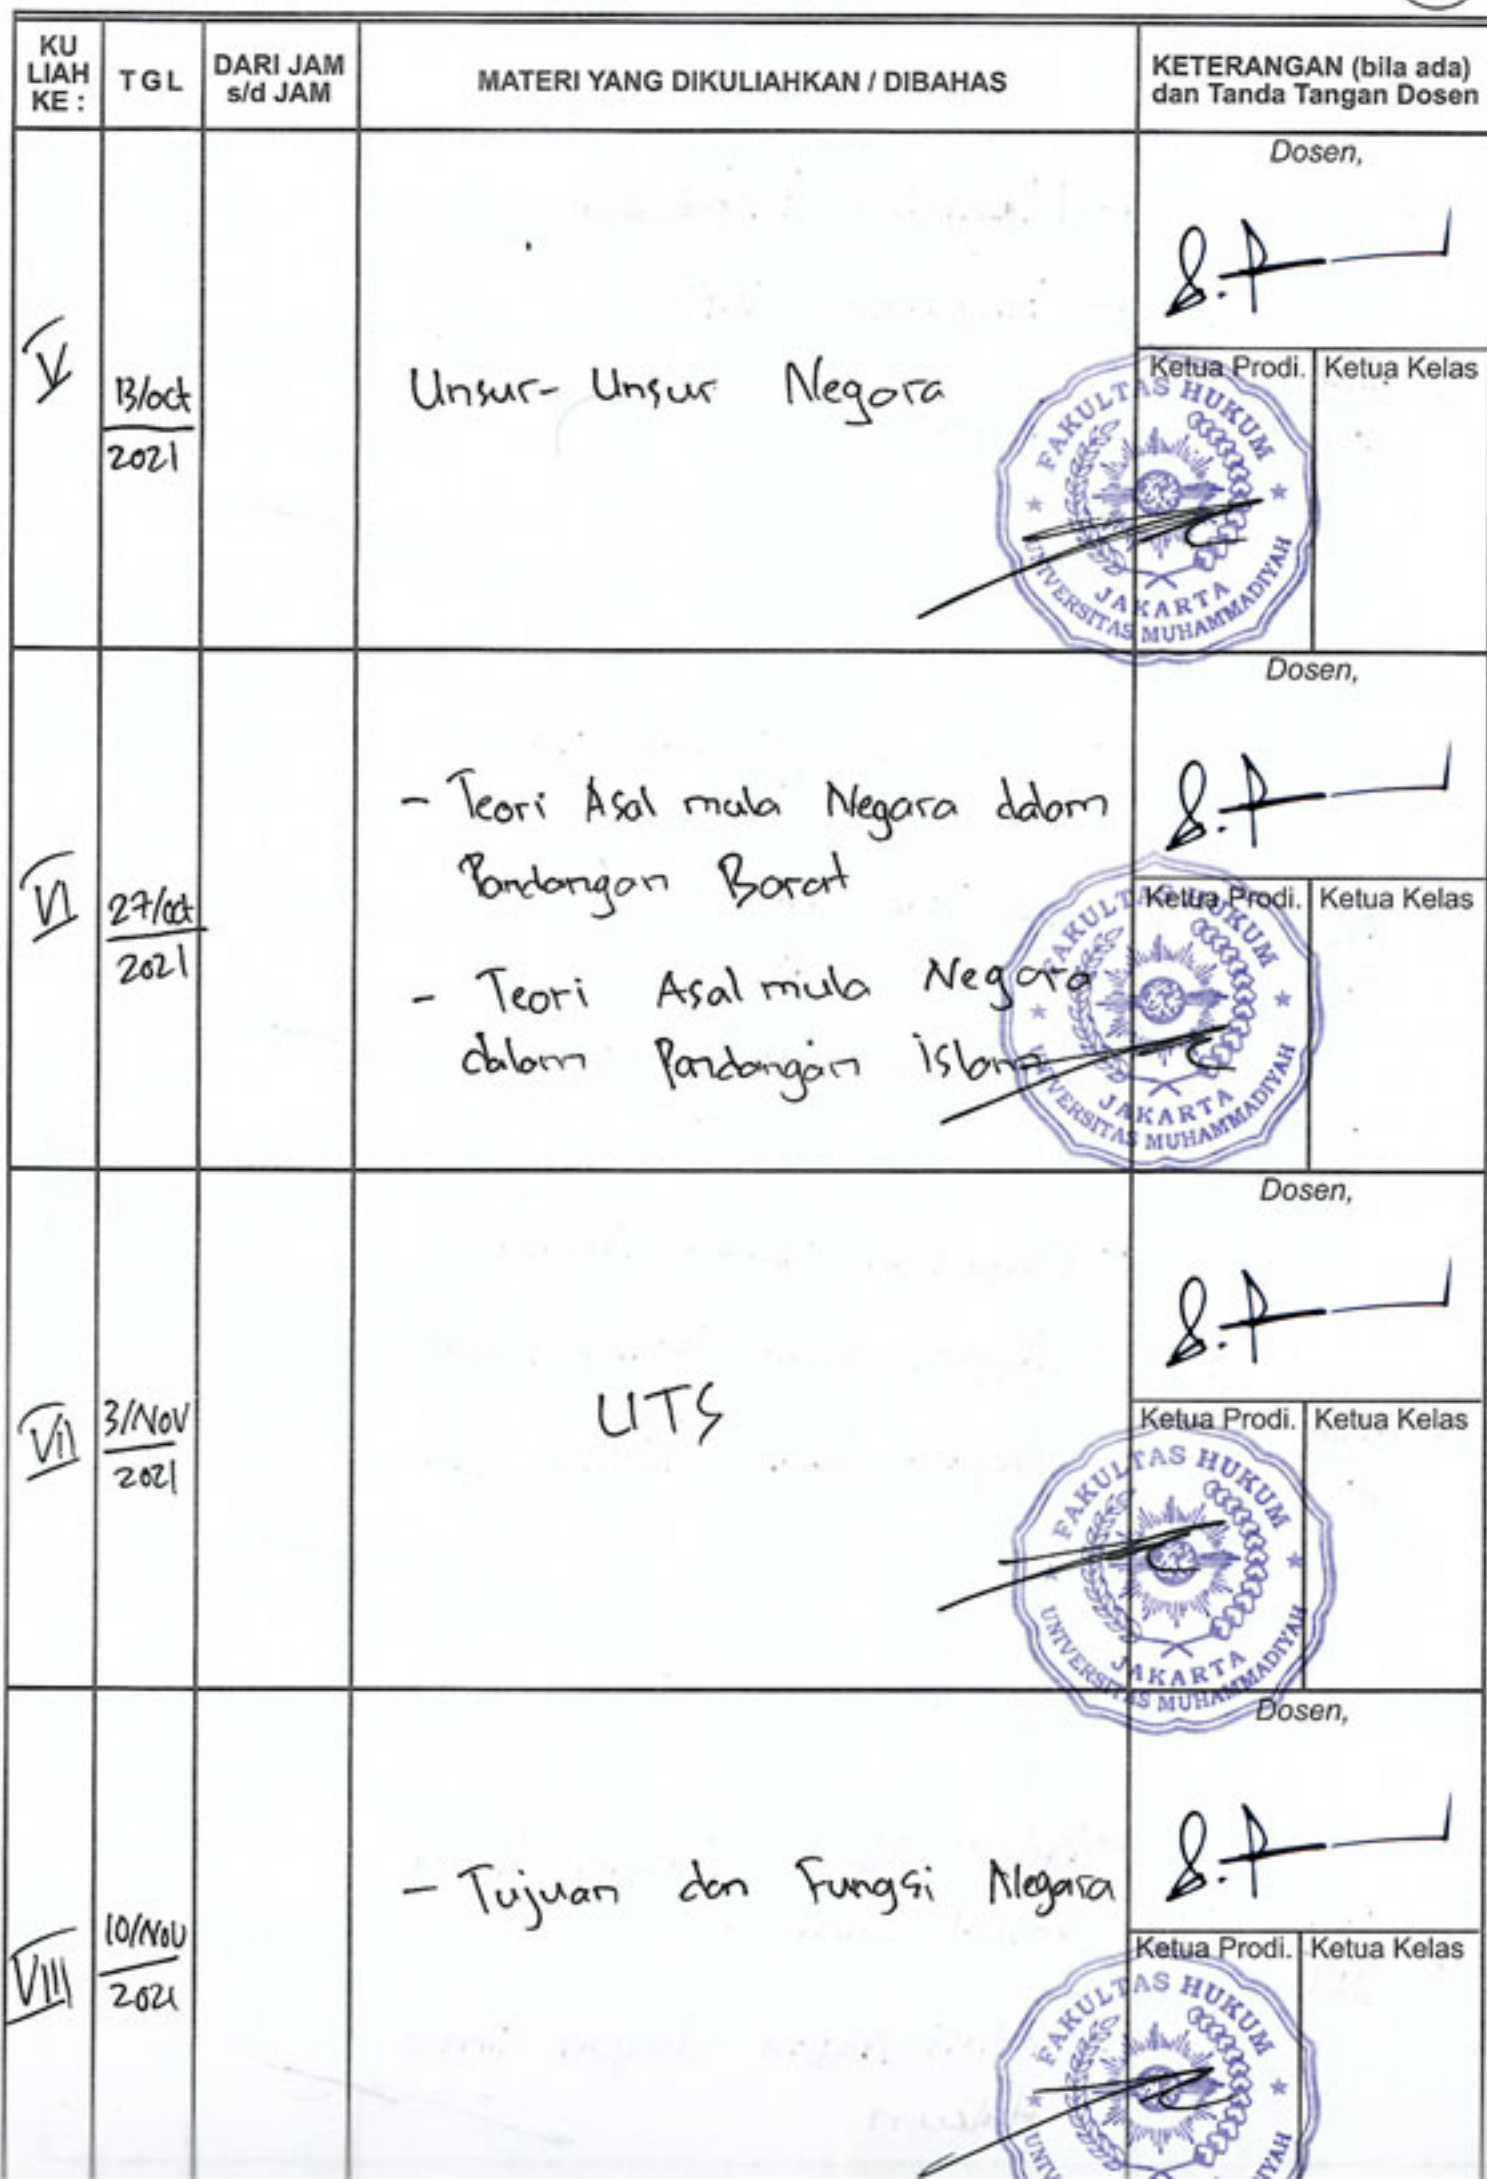 KU LIAH KE :
TGL
DARI JAM s/d JAM
MATERI YANG DIKULIAHKAN / DIBAHAS
KETERANGAN (bila ada) dan Tanda Tangan Dosen
V
13/oct
2021
Unsur- Unsur Negara
Dosen,
Ketua Prodi.
Ketua Kelas
FAKULTAS HUKUM
UNIVERSITAS MUHAMMADIYAH
JAKARTA
VI
27/oct
2021
- Teori Asal mula Negara dalam
Pandangan Barat
- Teori Asal mula Negara
dalam Pandangan islam
Dosen,
Ketua Prodi.
Ketua Kelas
FAKULTAS HUKUM
UNIVERSITAS MUHAMMADIYAH
JAKARTA
VII
3/Nov
2021
UTS
Dosen,
Ketua Prodi.
Ketua Kelas
FAKULTAS HUKUM
UNIVERSITAS MUHAMMADIYAH
JAKARTA
VIII
10/Nov
2021
- Tujuan dan Fungsi Negara
Dosen,
Ketua Prodi.
Ketua Kelas
FAKULTAS HUKUM